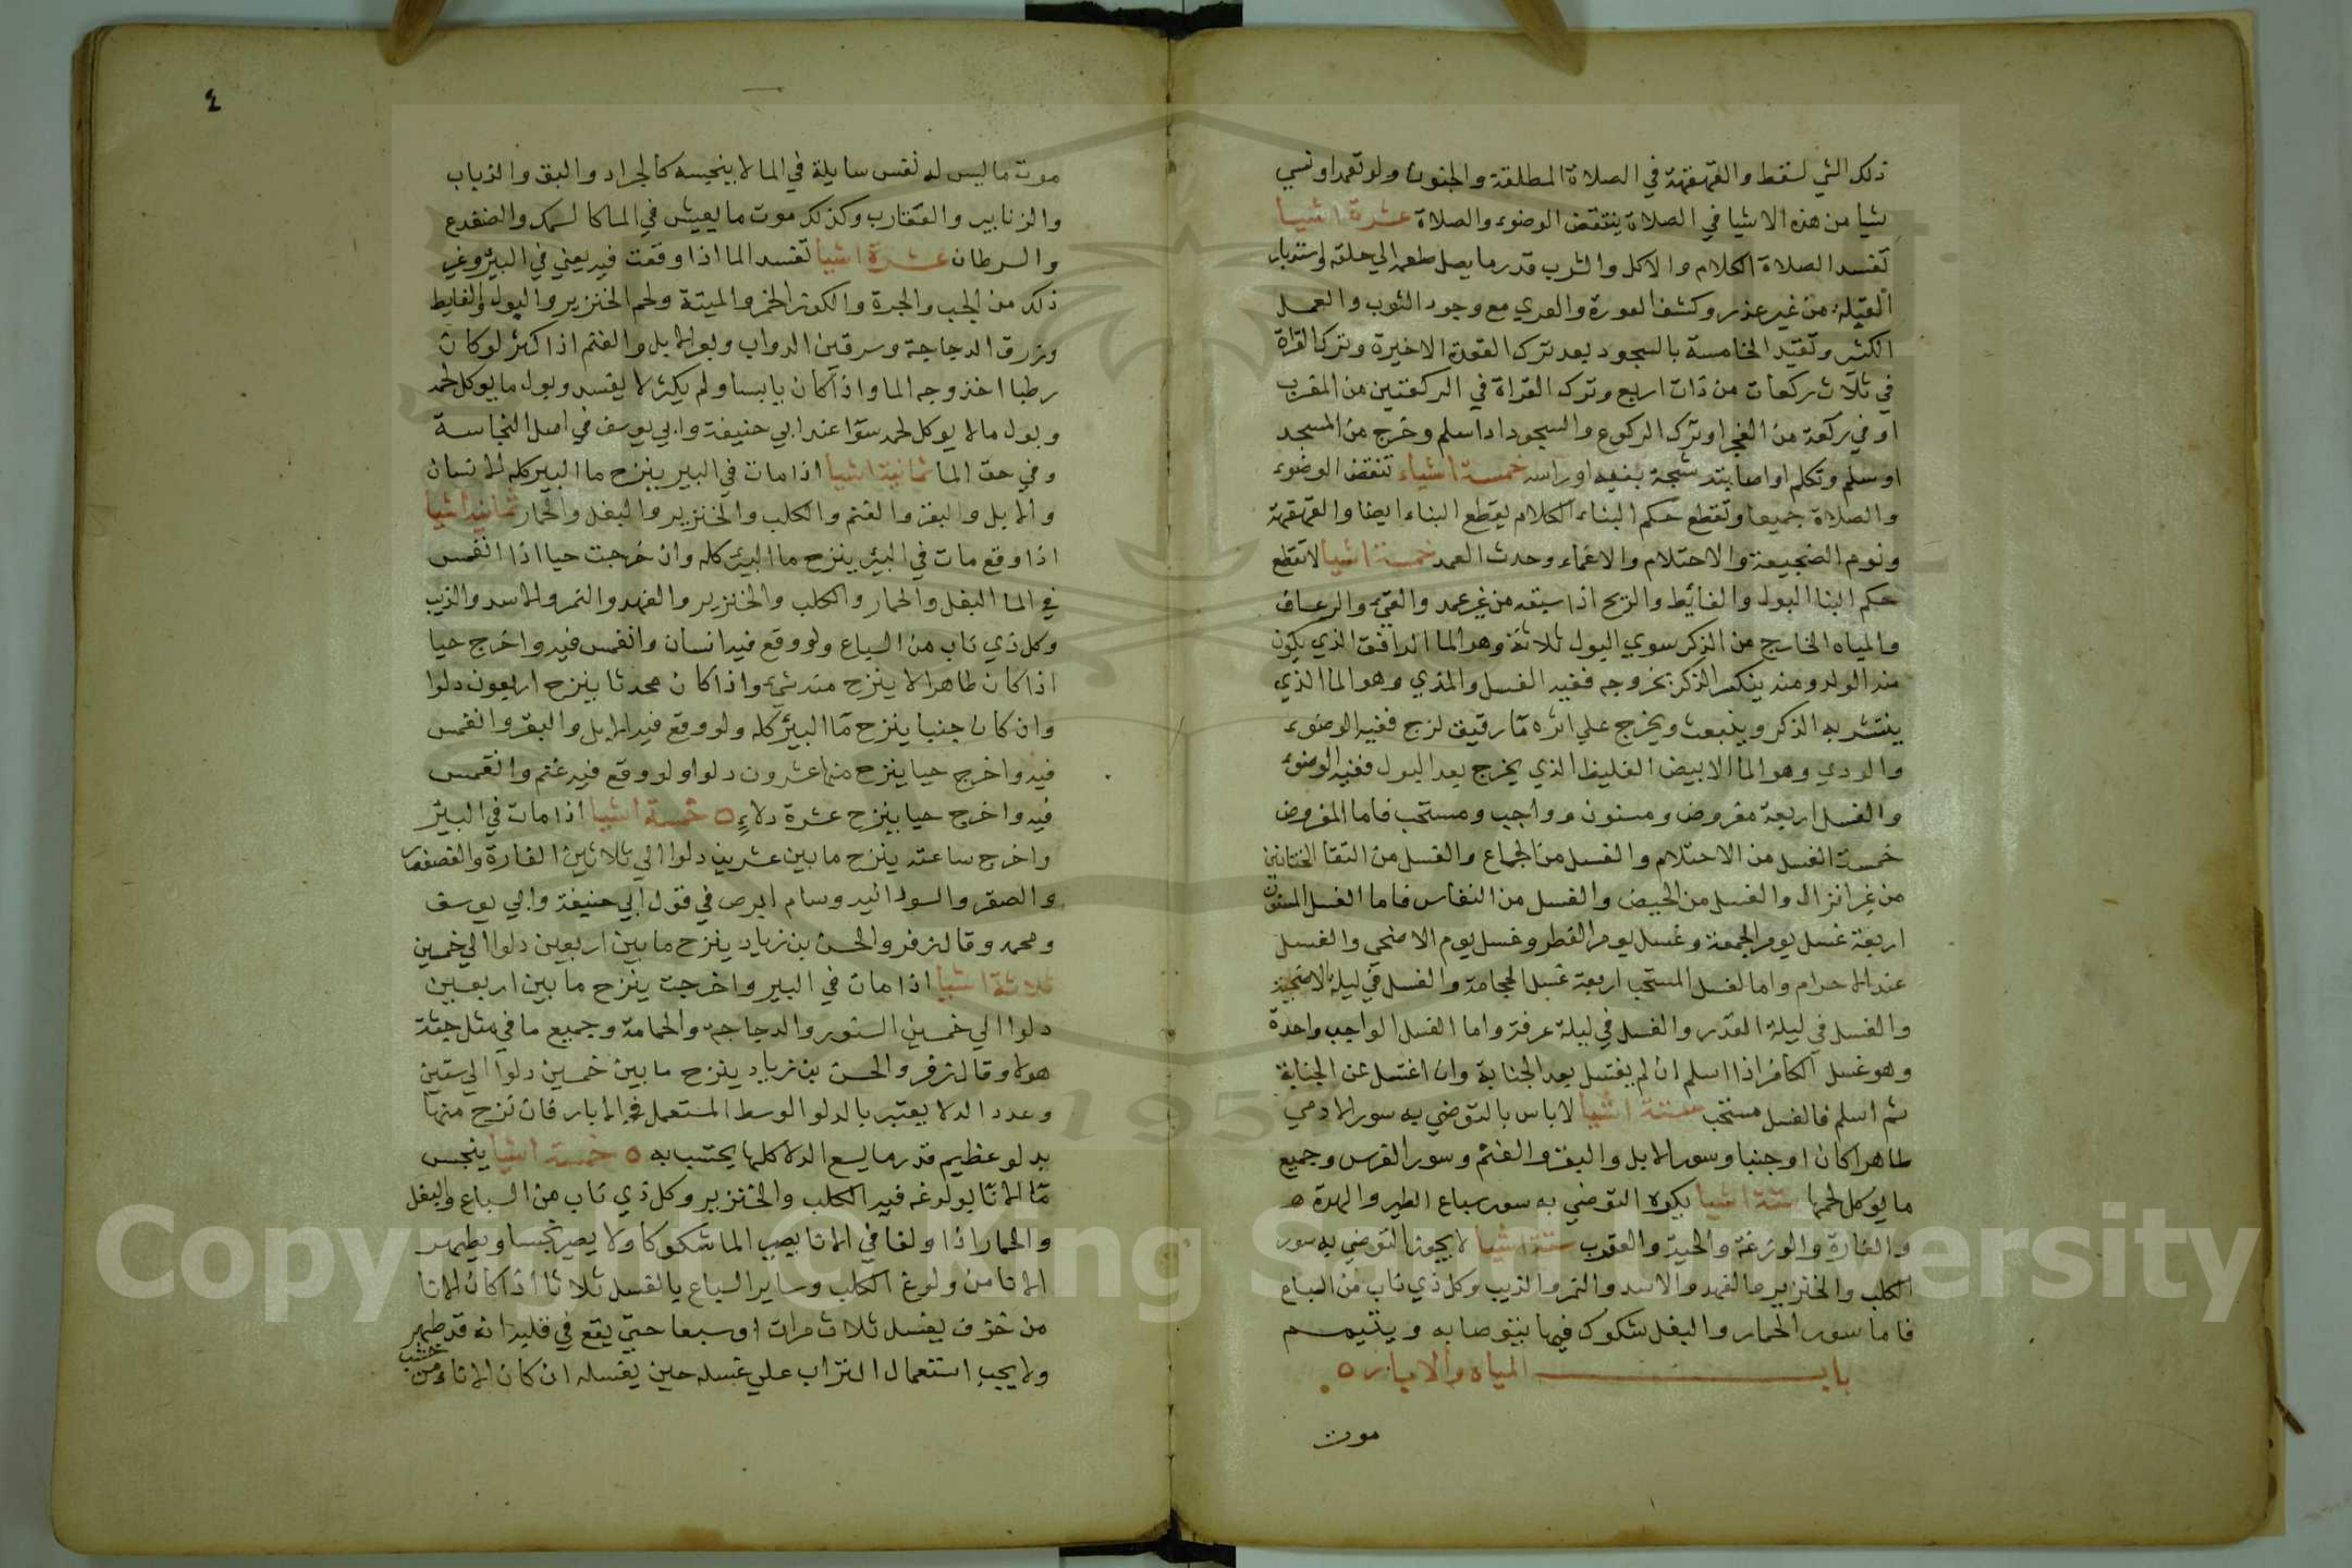 ذلك الشي لسقط والقهقهة في الصلاة المطلقة والجنون ولو تعمد او نسي
شيا من هذه الاشيا في الصلاة ينتقض الوضوء والصلاة عشرة اشيا
تفسد الصلاة الكلام والاكل والشرب قدر ما يصل طعمه الي حلقه واستدبار
القبلة من غير عذر وكشف العورة والعري مع وجود الثوب والعمل
الكثير وتقيد الخامسة بالسجود بعد ترك القعدة الاخيرة وترك القراة
في ثلاث ركعات من ذات اربع وترك القراة في الركعتين من المغرب
او في ركعة من الفجر او ترك الركوع والسجود اذا سلم وخرج من المسجد
او سلم وتكلم او اصابته شجة بفيه او راسه خمسة اشياء تنقض الوضوء
والصلاة جميعا وتقطع حكم البناء الكلام يقطع البناء ايضا والقهقهة
ونوم الضجيعة والاحتلام والاغماء وحدث العمد خمسة اشيا لا تقطع
حكم البنا البول والغائط والريح اذا سبقه من غير عمد والقيء والرعاف
والمياه الخارج من الذكر سوي البول ثلاثة وهو الما الدافق الذي يكون
منه الولد ومنه ينكسر الذكر بخروجه ففيه الغسل والمذي وهو الما الذي
ينتشر به الذكر وينبعث ويخرج علي اثره ما رقيق لزج ففيه الوضوء
والودي وهو الما الابيض الغليظ الذي يخرج بعد البول ففيه الوضوء
والغسل اربعة مفروض ومسنون وواجب ومستحب فاما المفروض
خمسة الغسل من الاحتلام والغسل من الجماع والغسل من التقا الختانين
من غير انزال والغسل من الحيض والغسل من النفاس فاما الغسل المسنون
اربعة غسل يوم الجمعة وغسل يوم الفطر وغسل يوم الاضحي والغسل
عند الاحرام واما الغسل المستحب اربعة غسل الحجامة والغسل في ليلة الاضحية
والغسل في ليلة القدر والغسل في ليلة عرفة واما الغسل الواجب واحدة
وهو غسل الكافر اذا اسلم ان لم يغتسل بعد الجنابة وان اغتسل عن الجنابة
ثم اسلم فالغسل مستحب ستة اشيا لا باس بالتوضي به سور الادمي
طاهرا كان او جنبا وسور الابل والبقر والغنم وسور الفرس وجميع
ما يوكل لحمها ستة اشيا يكره التوضي به سور سباع الطير والهرة ه
والفارة والوزغة والحية والعقرب ستة اشيا لا يجوز التوضي به سور
الكلب والخنزير والفهد والاسد والنمر والذيب وكل ذي ناب من السباع
فاما سور الحمار والبغل شكوك فيها يتوضا به ويتيمم
باب المياه والابيار ه
موت
2
موت ما ليس له نفس سايلة في الما لا ينجسه كالجراد والبق والذباب
والزنابير والعقارب وكذلك موت ما يعيش في الما كالسمك والضفدع
والسرطان عشرة اشيا تفسد الما اذا وقعت فيه يعني في البير وغير
ذلك من الجب والجرة والكوز الخمر والميتة ولحم الخنزير والبول والغايط
وزرق الدجاجة وسرقين الدواب وبعر الابل والغنم اذا كثر لو كان
رطبا اخذ وجه الما واذا كان يابسا ولم يكثر لا يفسد وبول ما يوكل لحمه
وبول ما لا يوكل لحمه سوا عند ابي حنيفة وابي يوسف في اصل النجاسة
وفي حق الما ثمانية اشيا اذا مات في البير ينزح ما البير كله الانسان
والابل والبقر والغنم والكلب والخنزير والبغل والحمار ثمانية اشيا
اذا وقع مات في البئر ينزح ما البئر كله وان خرجت حيا اذا انغمس
في الما البغل والحمار والكلب والخنزير والفهد والنمر والاسد والذيب
وكل ذي ناب من السباع ولو وقع فيه انسان وانغمس فيه واخرج حيا
اذا كان طاهرا لا ينزح منه شيء واذا كان محدثا ينزح اربعون دلوا
وان كان جنبا ينزح ما البئر كله ولو وقع فيه الابل والبقر وانغمس
فيه واخرج حيا ينزح منها عشرون دلوا ولو وقع فيه غنم وانغمس
فيه واخرج حيا ينزح عشرة دلاء ه خمسة اشيا اذا مات في البئر
واخرج ساعته ينزح ما بين عشرين دلوا الي ثلاثين الفارة والعصفور
والصقر والسودانيه وسام ابرص في قول ابي حنيفة وابي يوسف
ومحمد وقال زفر والحسن بن زياد ينزح ما بين اربعين دلوا الي خمسين
ثلاثة اشيا اذا مات في البير واخرجت ينزح ما بين اربعين
دلوا الي خمسين السنور والدجاجة والحمامة وجميع ما في مثل جثة
هولا وقال زفر والحسن بن زياد ينزح ما بين خمسين دلوا الي ستين
وعدد الدلا يعتبر بالدلو الوسط المستعمل في الابار فان نزح منها
بدلو عظيم قدر ما يسع الدلا كلها يحتسب به ه خمسة اشيا ينجس
ما الانا بولوغه فيه الكلب والخنزير وكل ذي ناب من السباع والبغل
والحمار اذا ولغا في الانا يصب الما شكوكا ولا يصير نجسا ويطهر
الانا من ولوغ الكلب وساير السباع يالغسل ثلاثا اذا كان الانا
من خزف يغسل ثلاث مرات او سبعا حتي يقع في قلبه انه قد طهر
ولا يجب استعمال التراب علي غسله حين يغسله ان كان الاناء من خشب
Copyright © King Saud University
1957